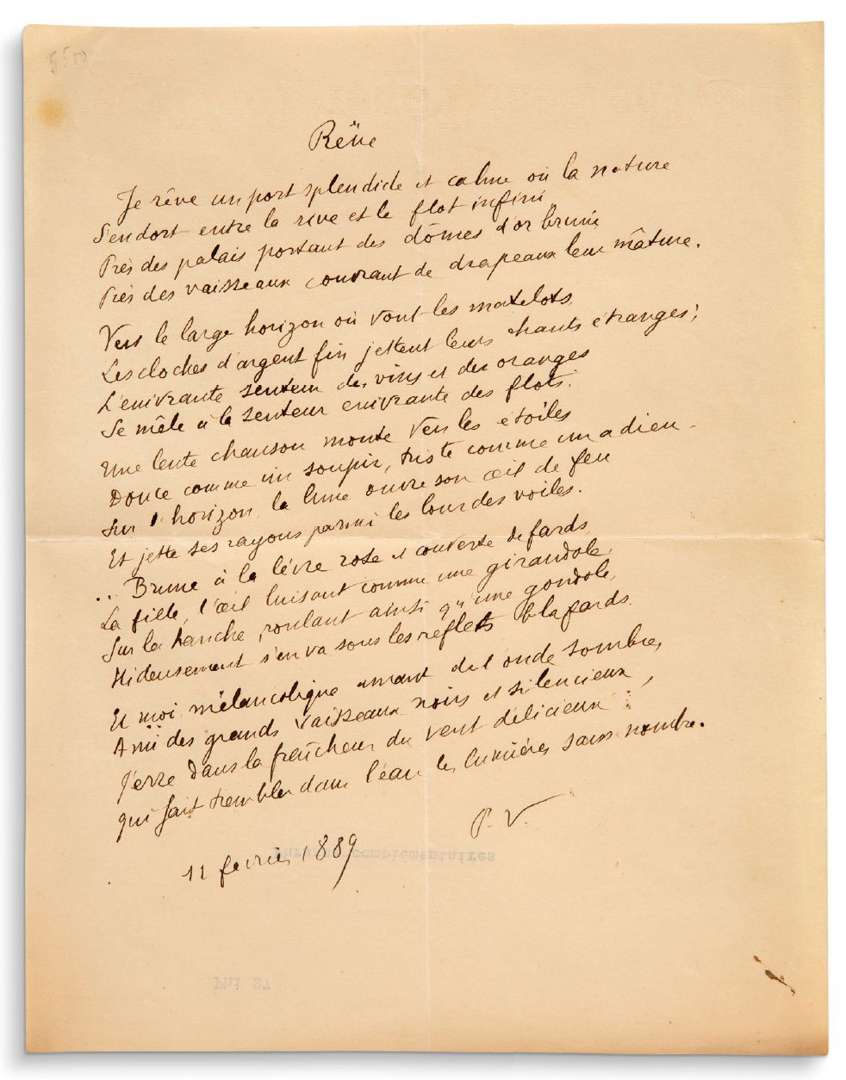 Rêve
Je rêve un port splendide et calme où la nature
S'endort entre la rive et le flot infini,
Près des palais portant des dômes d'or bruni
Près des vaisseaux couvrant de drapeaux leur mâture.
Vers le large horizon où vont les matelots
Les cloches d'argent fin jettent leurs chants étranges;
L'enivrante senteur des vins et des oranges
Se mêle à la senteur enivrante des flots.
Une lente chanson monte vers les étoiles
Douce comme un soupir, triste comme un adieu.
Sur l'horizon la lune ouvre son œil de feu
Et jette ses rayons parmi les lourdes voiles.
.. Brune à la lèvre rose et couverte de fards
La fille, l'œil luisant comme une girandole,
Sur la hanche, roulant ainsi qu'une gondole,
Hideusement s'en va sous les reflets blafards.
Et moi mélancolique amant de l'onde sombre,
Ami des grands vaisseaux noirs et silencieux,
J'erre dans la fraîcheur du vent délicieux
qui fait trembler dans l'eau les lumières sans nombre.
P. V.
11 février 1889